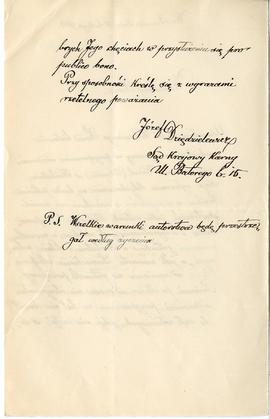 brych Jego chęciach w przysłużeniu się pro
publico bono.
Przy sposobności kreślę się z wyrazami
rzetelnego poważania
Józef Dzędzielewicz
Sąd Krajowy Karny
Ul. Batorego L. 16.
P.S. Wszelkie warunki autorstwa będę przestrze-
gał według życzenia